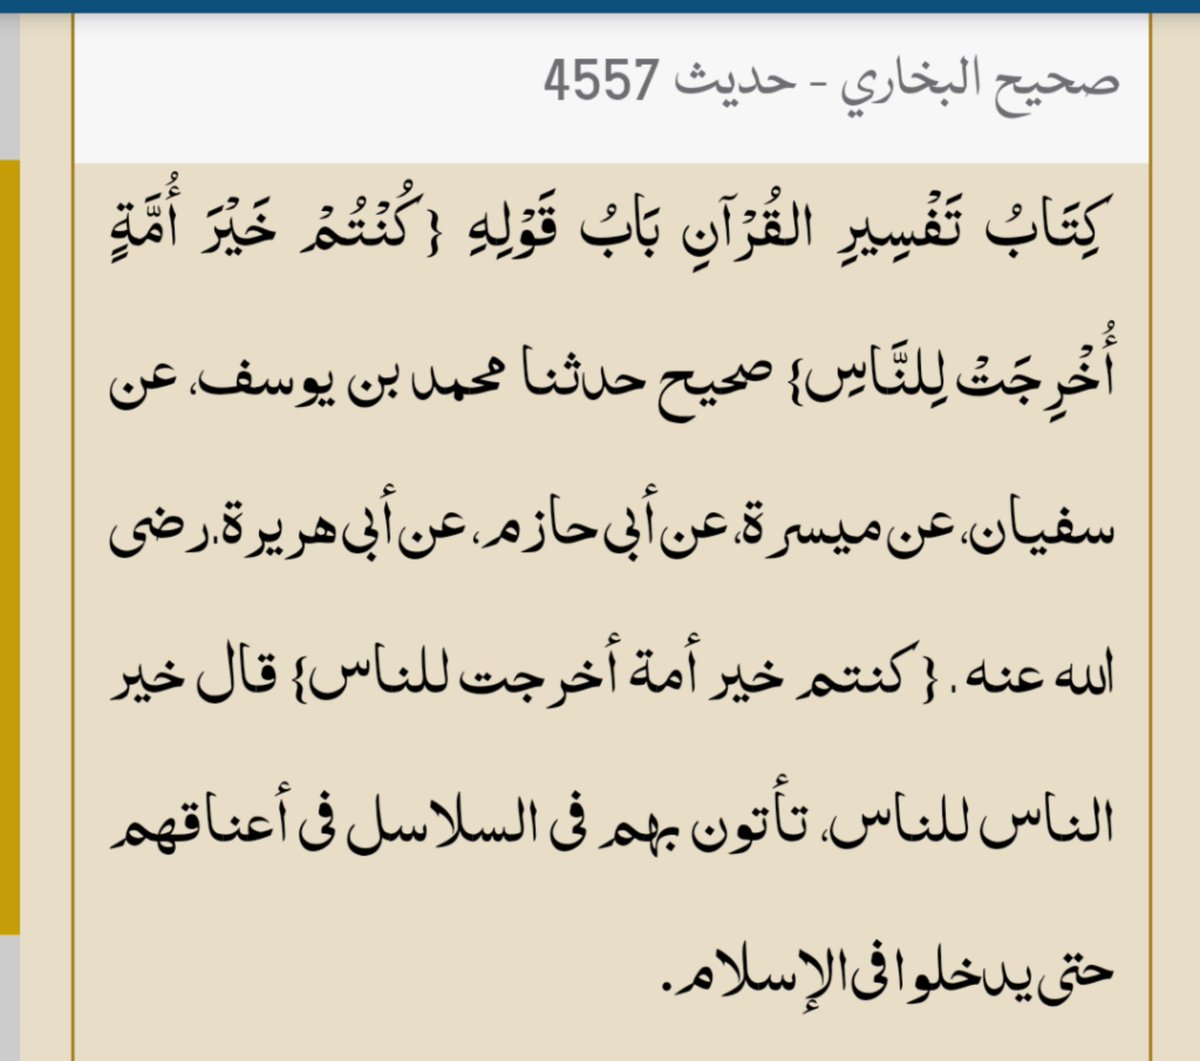 صحيح البخاري - حديث 4557
كِتَابُ تَفْسِيرِ القُرْآنِ بَابُ قَوْلِهِ {كُنْتُمْ خَيْرَ أُمَّةٍ
أُخْرِجَتْ لِلنَّاسِ} صحيح حدثنا محمد بن يوسف، عن
سفيان، عن ميسرة، عن أبي حازم، عن أبي هريرة، رضى
الله عنه ‏.‏ {كنتم خير أمة أخرجت للناس} قال خير
الناس للناس، تأتون بهم فى السلاسل فى أعناقهم
حتى يدخلوا فى الإسلام.